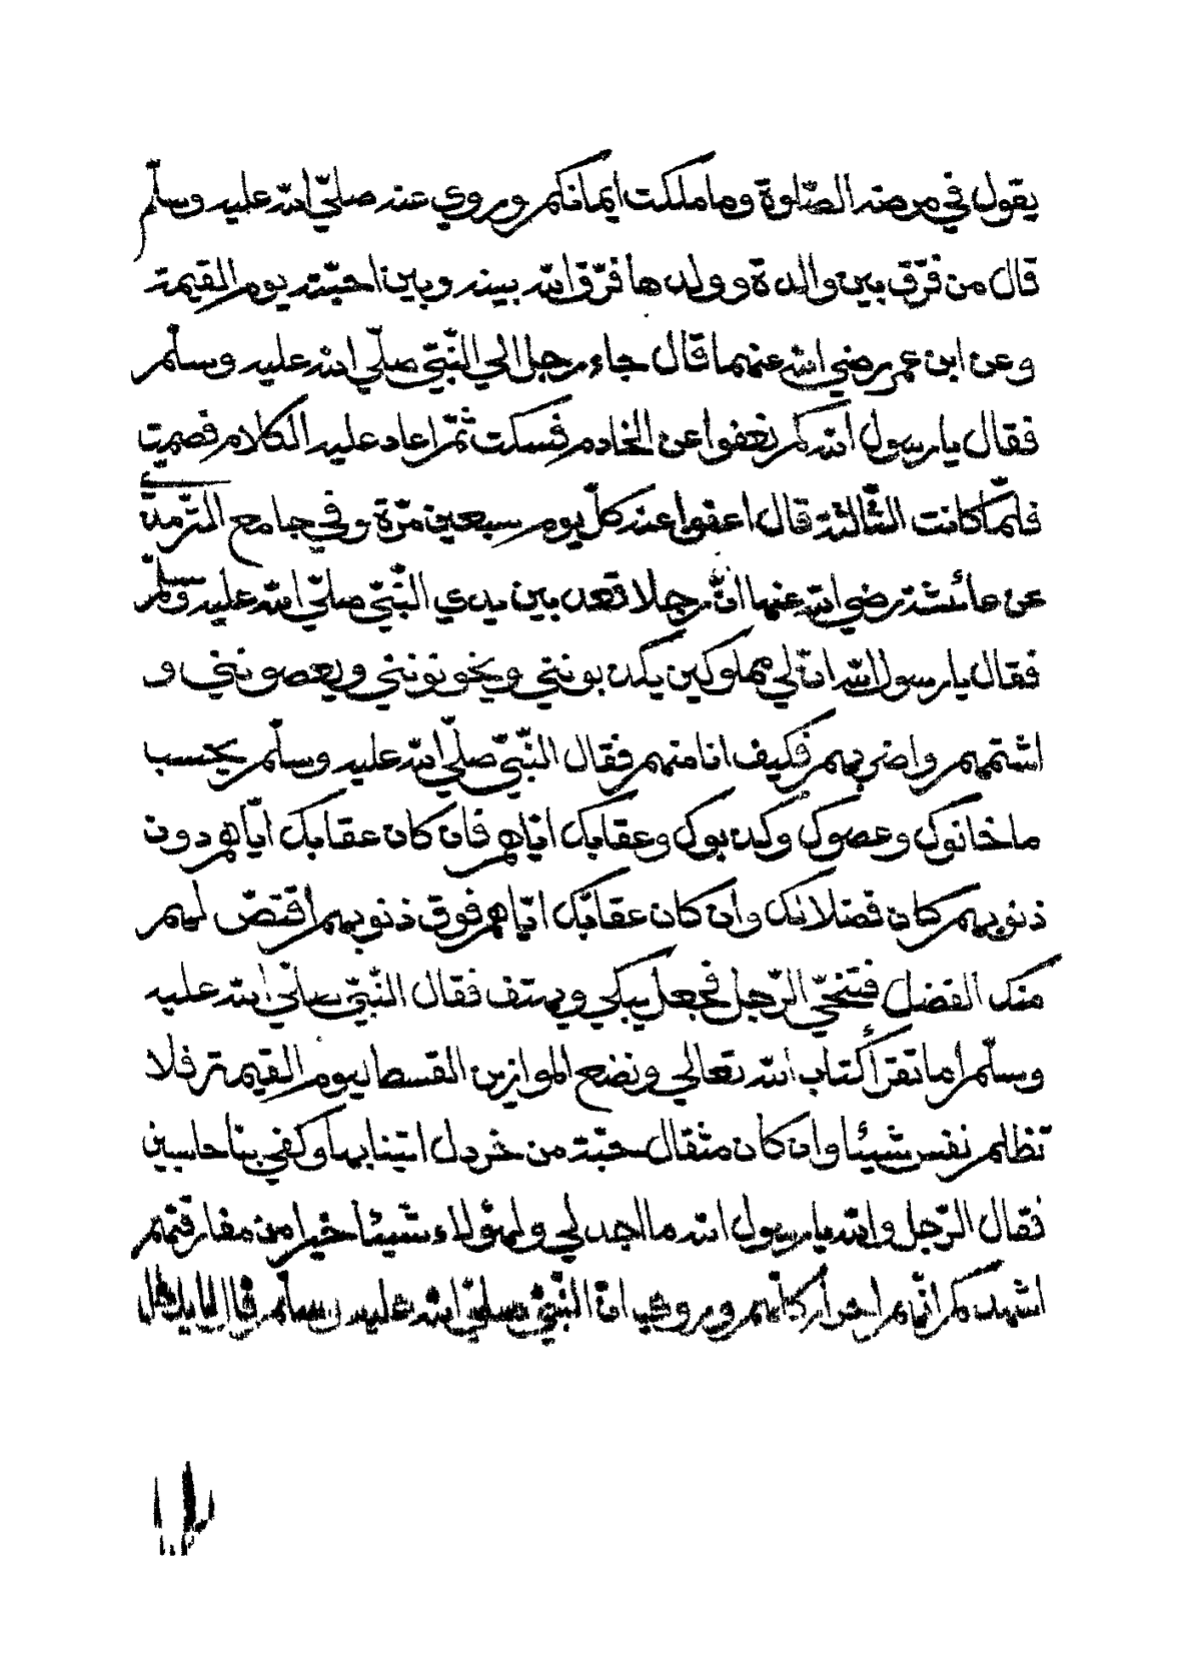 يقول في مرضه الصّلوة وما ملكت ايمانكم وروي عنه صلّي الله عليه وسلّم
قال من فرّق بين والدة وولدها فرّق الله بينه وبين احبّته يوم القيمة
وعن ابن عمر رضي الله عنهما قال جاء رجل الي النّبيّ صلّي الله عليه وسلّم
فقال يا رسول الله كم نعفوا عن الخادم فسكت ثمّ اعاد عليه الكلام فصمت
فلمّا كانت الثّالثة قال اعفوا عنه كلّ يوم سبعين مرّة وفي جامع التّرمذيّ
عن عائشة رضي الله عنها انّ رجلا قعد بين يدي النّبيّ صلّي الله عليه وسلّم
فقال يا رسول الله انّ لي مملوكين يكذبونني ويخونونني ويعصونني و
اشتمهم واضربهم فكيف انا منهم فقال النّبيّ صلّي الله عليه وسلّم يحسب
ما خانوك وعصوك وكذبوك وعقابك ايّاهم فان كان عقابك ايّاهم دون
ذنوبهم كان فضلا لك وان كان عقابك ايّاهم فوق ذنوبهم اقتصّ لهم
منك الفضل فتنحّي الرّجل فجعل يبكي ويهتف فقال النّبيّ صلّي الله عليه
وسلّم اما تقرأ كتاب الله تعالي ونضع الموازين القسط ليوم القيمة فلا
تظلم نفس شيئا وان كان مثقال حبّة من خردل اتينا بها وكفي بنا حاسبين
فقال الرّجل والله يا رسول الله ما اجد لي ولهؤلاء شيئا خيرا من مفارقتهم
اشهدكم انّهم احرار كلّهم وروي انّ النّبيّ صلّي الله عليه وسلّم قال